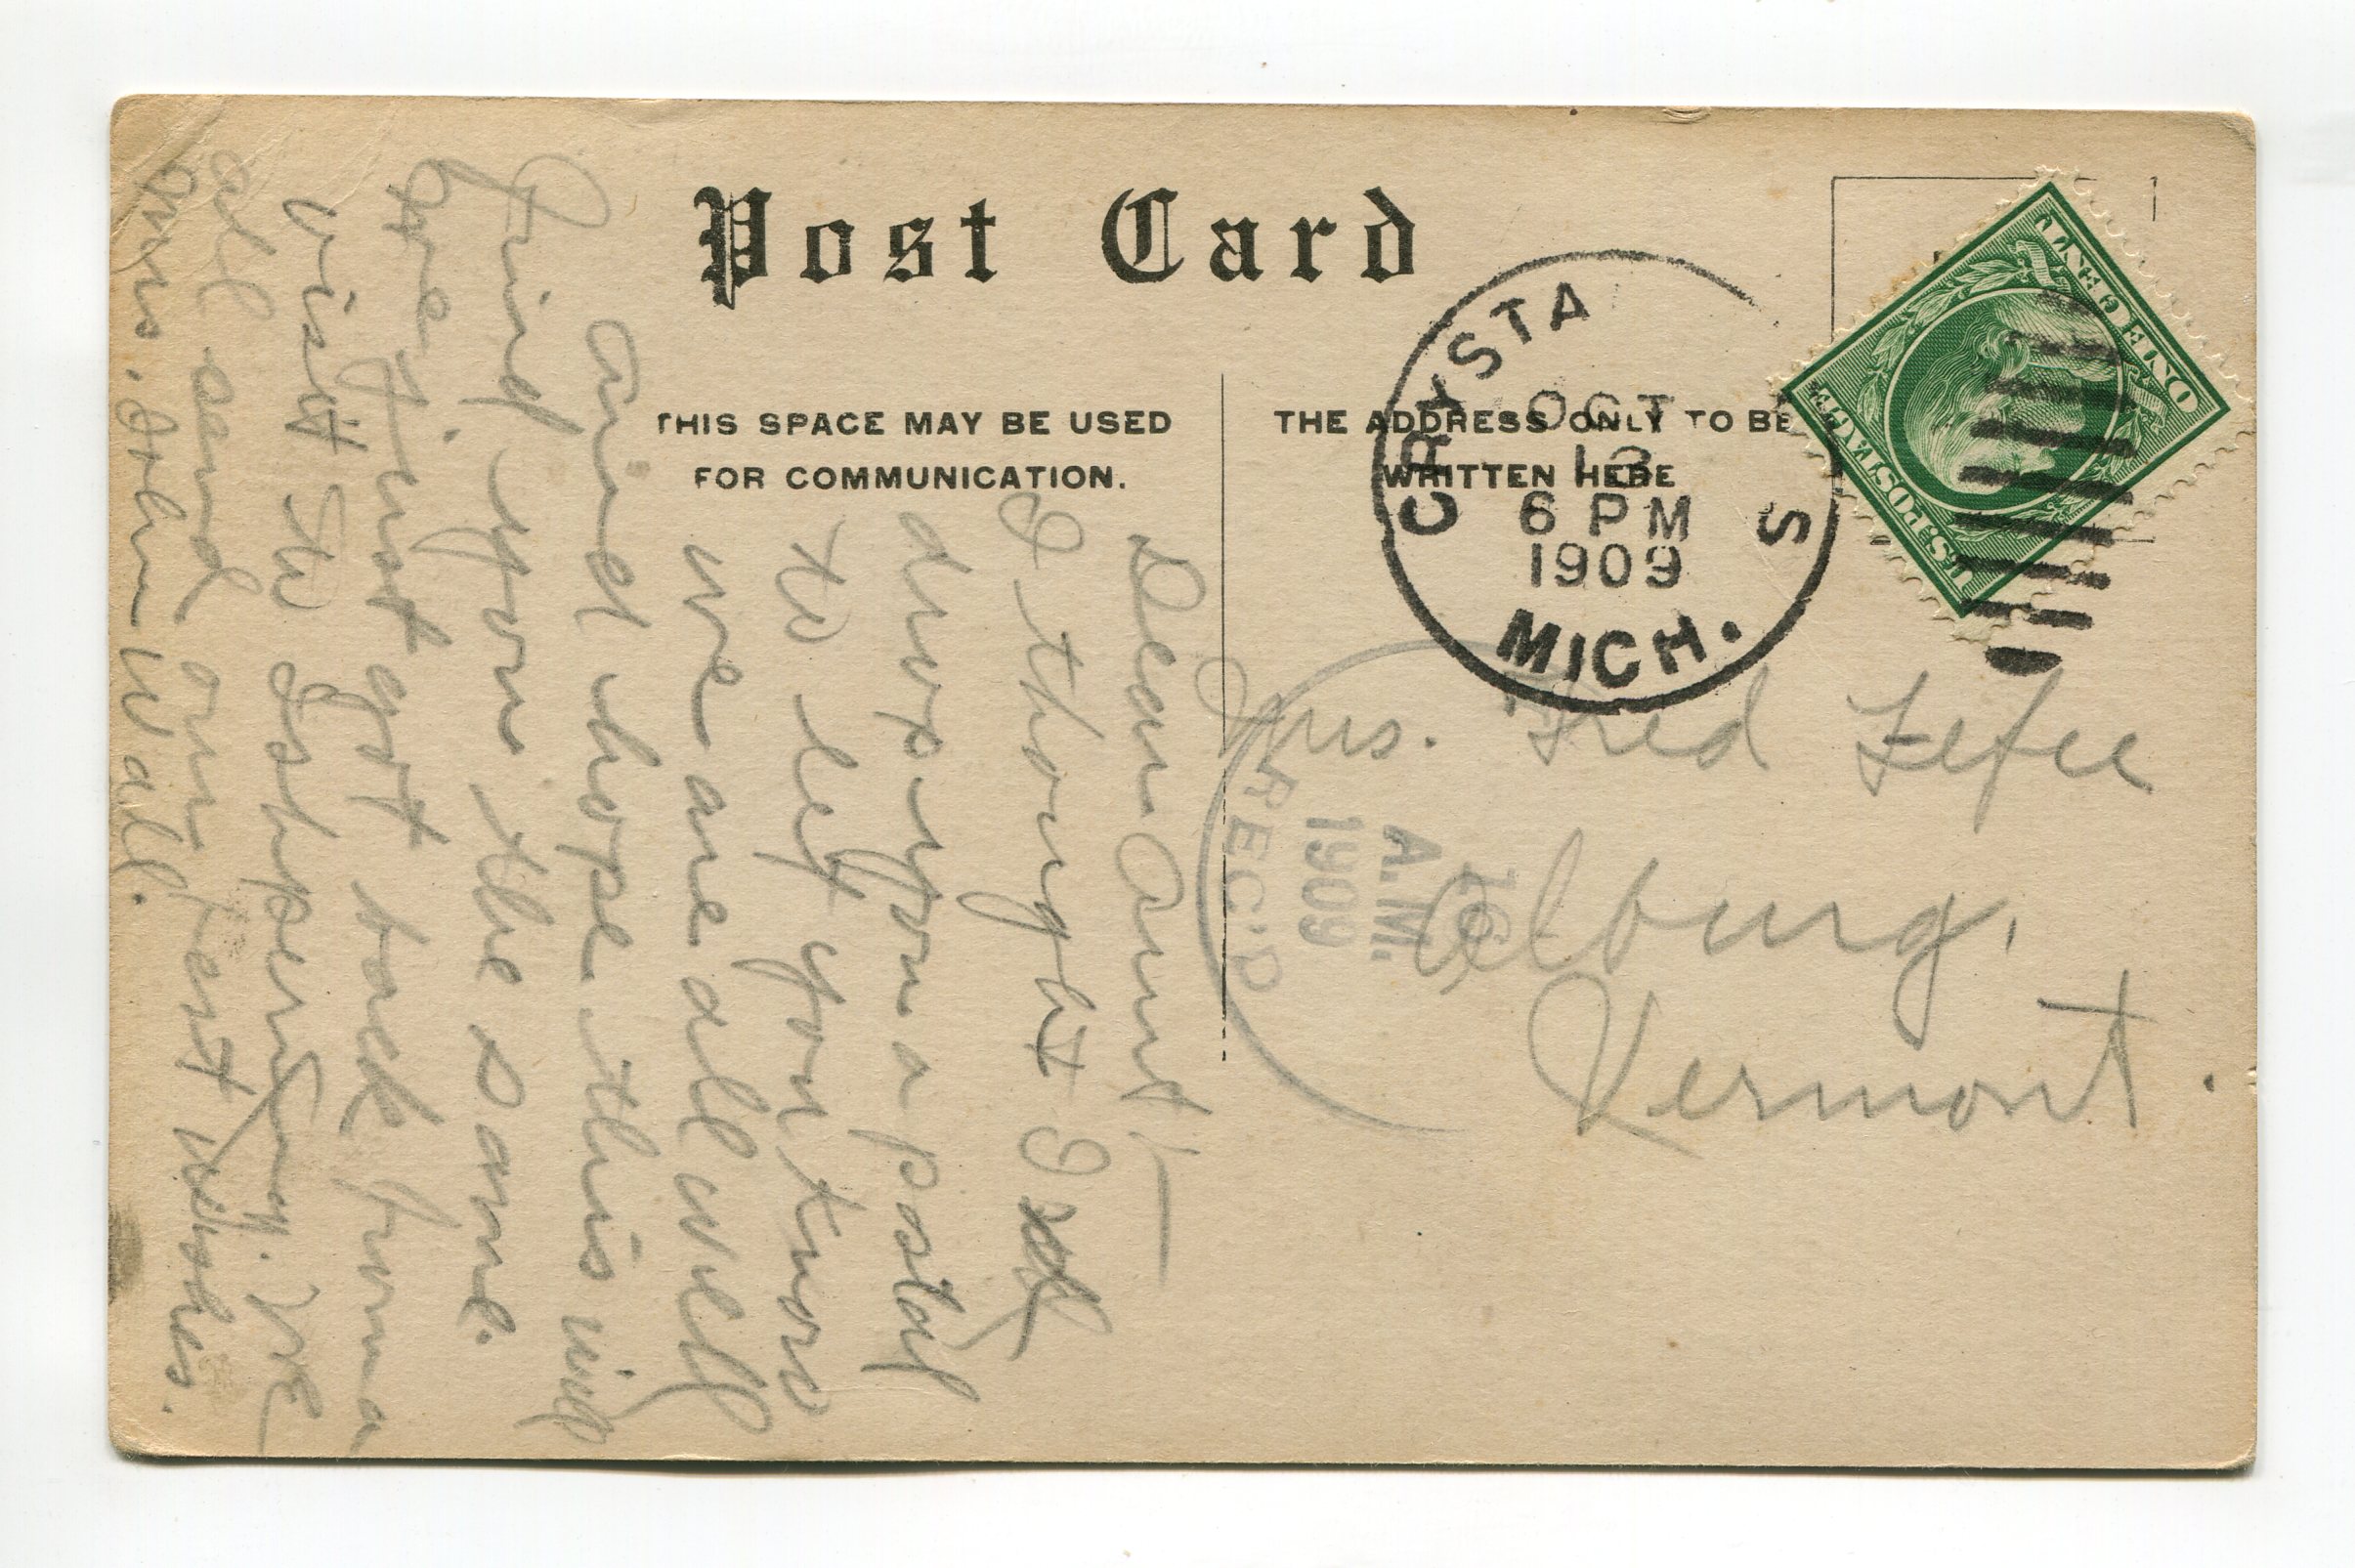 Post Card
THIS SPACE MAY BE USED
FOR COMMUNICATION.
THE ADDRESS ONLY TO BE
WRITTEN HERE
CRYSTA S
OCT
13
6 PM
1909
MICH.
U.S. POSTAGE
ONE CENT
Mrs. Fred Lefee
Alburg,
Vermont.
16
A.M.
1909
REC'D
Dear Aunt!—
I thought I
drop you a postal
to let you know
we are all well
and hope this will
find you the same.
We just got back from a
visit to Ishpeming. We
all send our best wishes.
Mrs. John Wall.